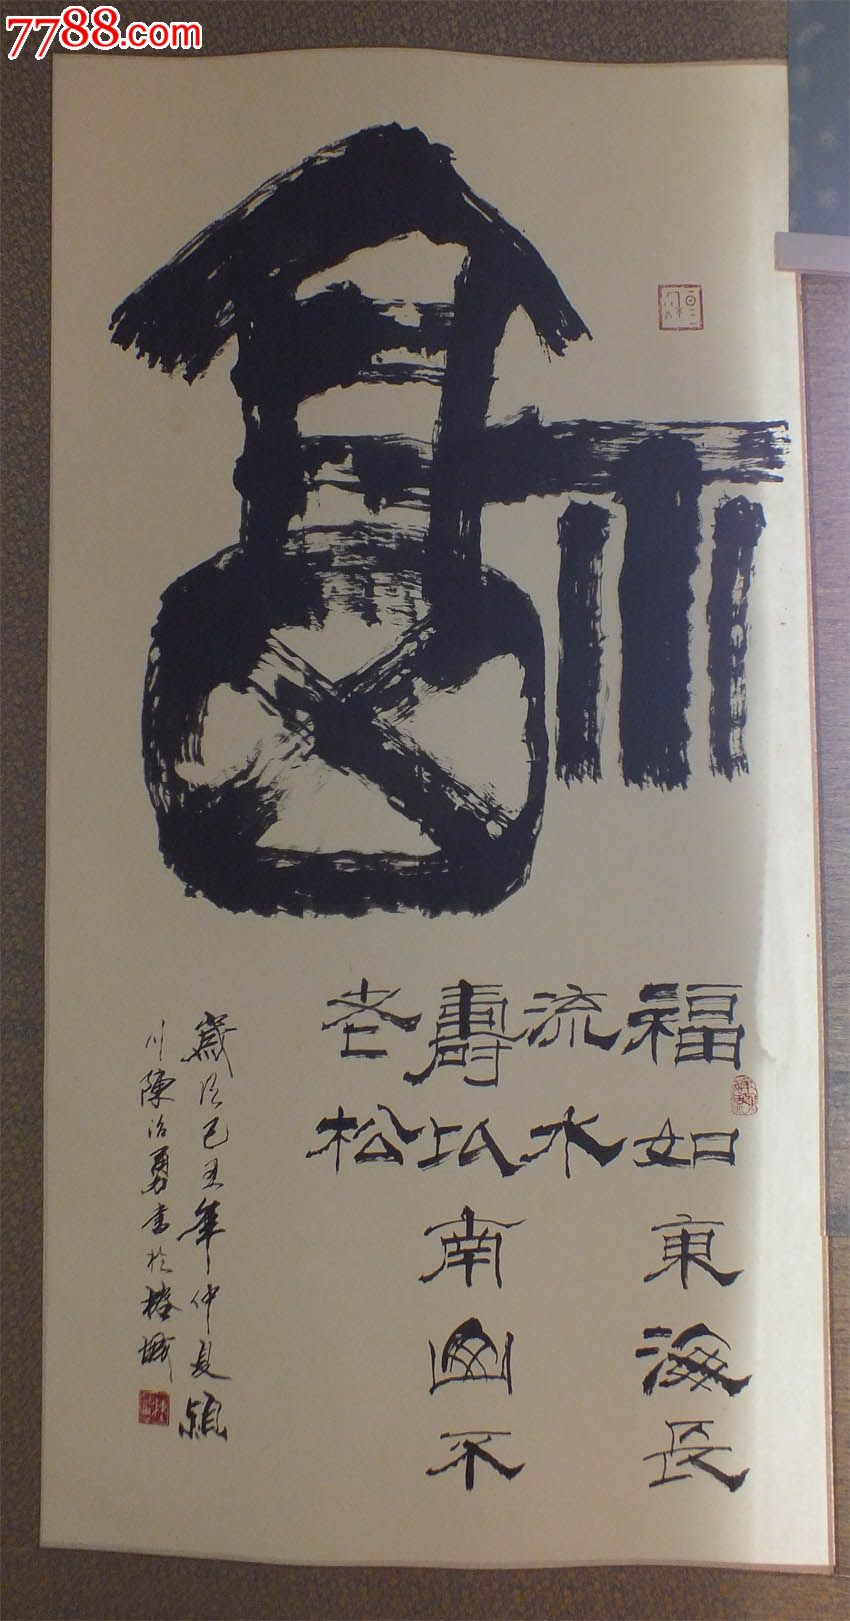 7788.com
福
福如東海長
流水
壽以南山不
老松
歲次己丑年仲夏潁
川陳治勇書於榕城